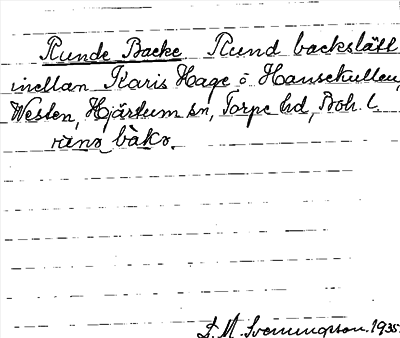 Runde Backe Rund backslätt
mellan Karis Hage o Hansekullen,
Westen, Hjärtum sn, Torpe hd, Boh. l.
rànə bàkə.
S. M. Svenningson. 1935